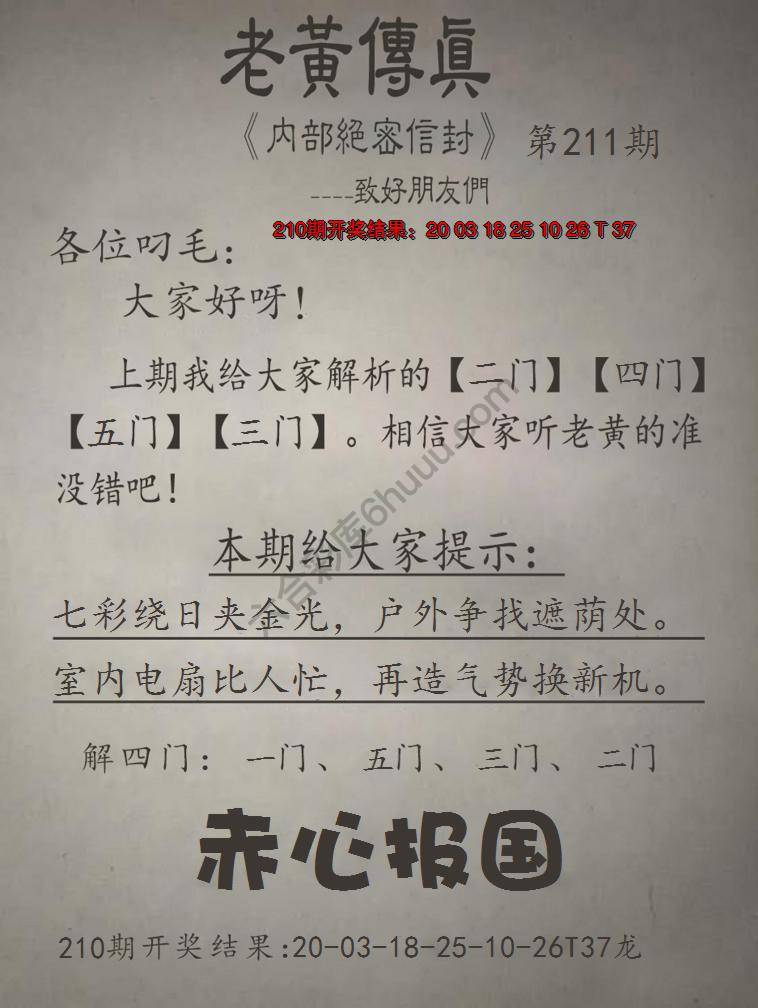 老黃傳眞
《内部絕密信封》 第211期
----致好朋友們
210期开奖结果：20 03 18 25 10 26 T 37
各位叼毛：
大家好呀！
上期我给大家解析的【二门】【四门】
【五门】【三门】。相信大家听老黄的准
没错吧！
本期给大家提示：
七彩绕日夹金光，户外争找遮荫处。
室内电扇比人忙，再造气势换新机。
解四门：一门、五门、三门、二门
赤心报国
210期开奖结果:20-03-18-25-10-26T37龙
六合彩库6huuu.com